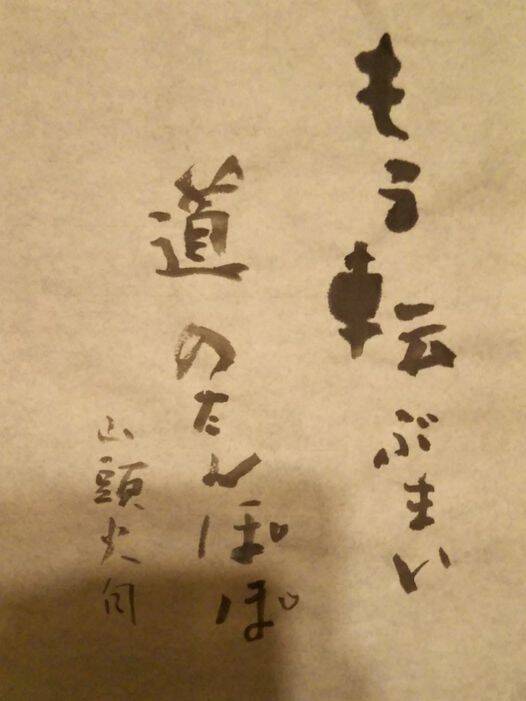 もう転ぶまい
道のたんぽぽ
山頭火句